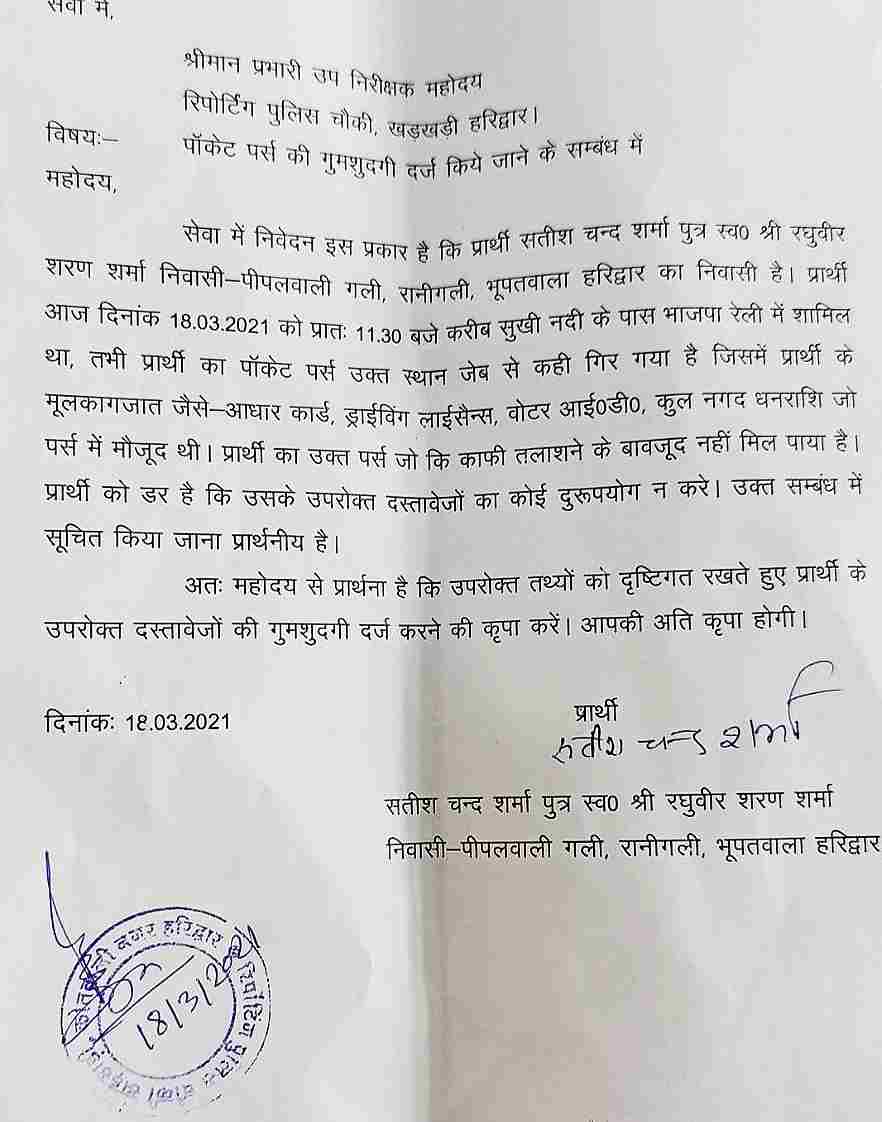 सेवा में,
श्रीमान प्रभारी उप निरीक्षक महोदय
रिपोर्टिंग पुलिस चौकी, खड़खड़ी हरिद्वार।
विषयः– पॉकेट पर्स की गुमशुदगी दर्ज किये जाने के सम्बंध में
महोदय,
सेवा में निवेदन इस प्रकार है कि प्रार्थी सतीश चन्द शर्मा पुत्र स्व0 श्री रघुवीर
शरण शर्मा निवासी–पीपलवाली गली, रानीगली, भूपतवाला हरिद्वार का निवासी है। प्रार्थी
आज दिनांक 18.03.2021 को प्रातः 11.30 बजे करीब सुखी नदी के पास भाजपा रेली में शामिल
था, तभी प्रार्थी का पॉकेट पर्स उक्त स्थान जेब से कही गिर गया है जिसमें प्रार्थी के
मूलकागजात जैसे–आधार कार्ड, ड्राईविंग लाईसैन्स, वोटर आई0डी0, कुल नगद धनराशि जो
पर्स में मौजूद थी। प्रार्थी का उक्त पर्स जो कि काफी तलाशने के बावजूद नहीं मिल पाया है।
प्रार्थी को डर है कि उसके उपरोक्त दस्तावेजों का कोई दुरूपयोग न करे। उक्त सम्बंध में
सूचित किया जाना प्रार्थनीय है।
अतः महोदय से प्रार्थना है कि उपरोक्त तथ्यों को दृष्टिगत रखते हुए प्रार्थी के
उपरोक्त दस्तावेजों की गुमशुदगी दर्ज करने की कृपा करें। आपकी अति कृपा होगी।
दिनांकः 18.03.2021
प्रार्थी
सतीश चन्द शर्मा
सतीश चन्द शर्मा पुत्र स्व0 श्री रघुवीर शरण शर्मा
निवासी–पीपलवाली गली, रानीगली, भूपतवाला हरिद्वार
कोतवाली नगर हरिद्वार
रिपोर्टिंग पुलिस चौकी
18/3/2021